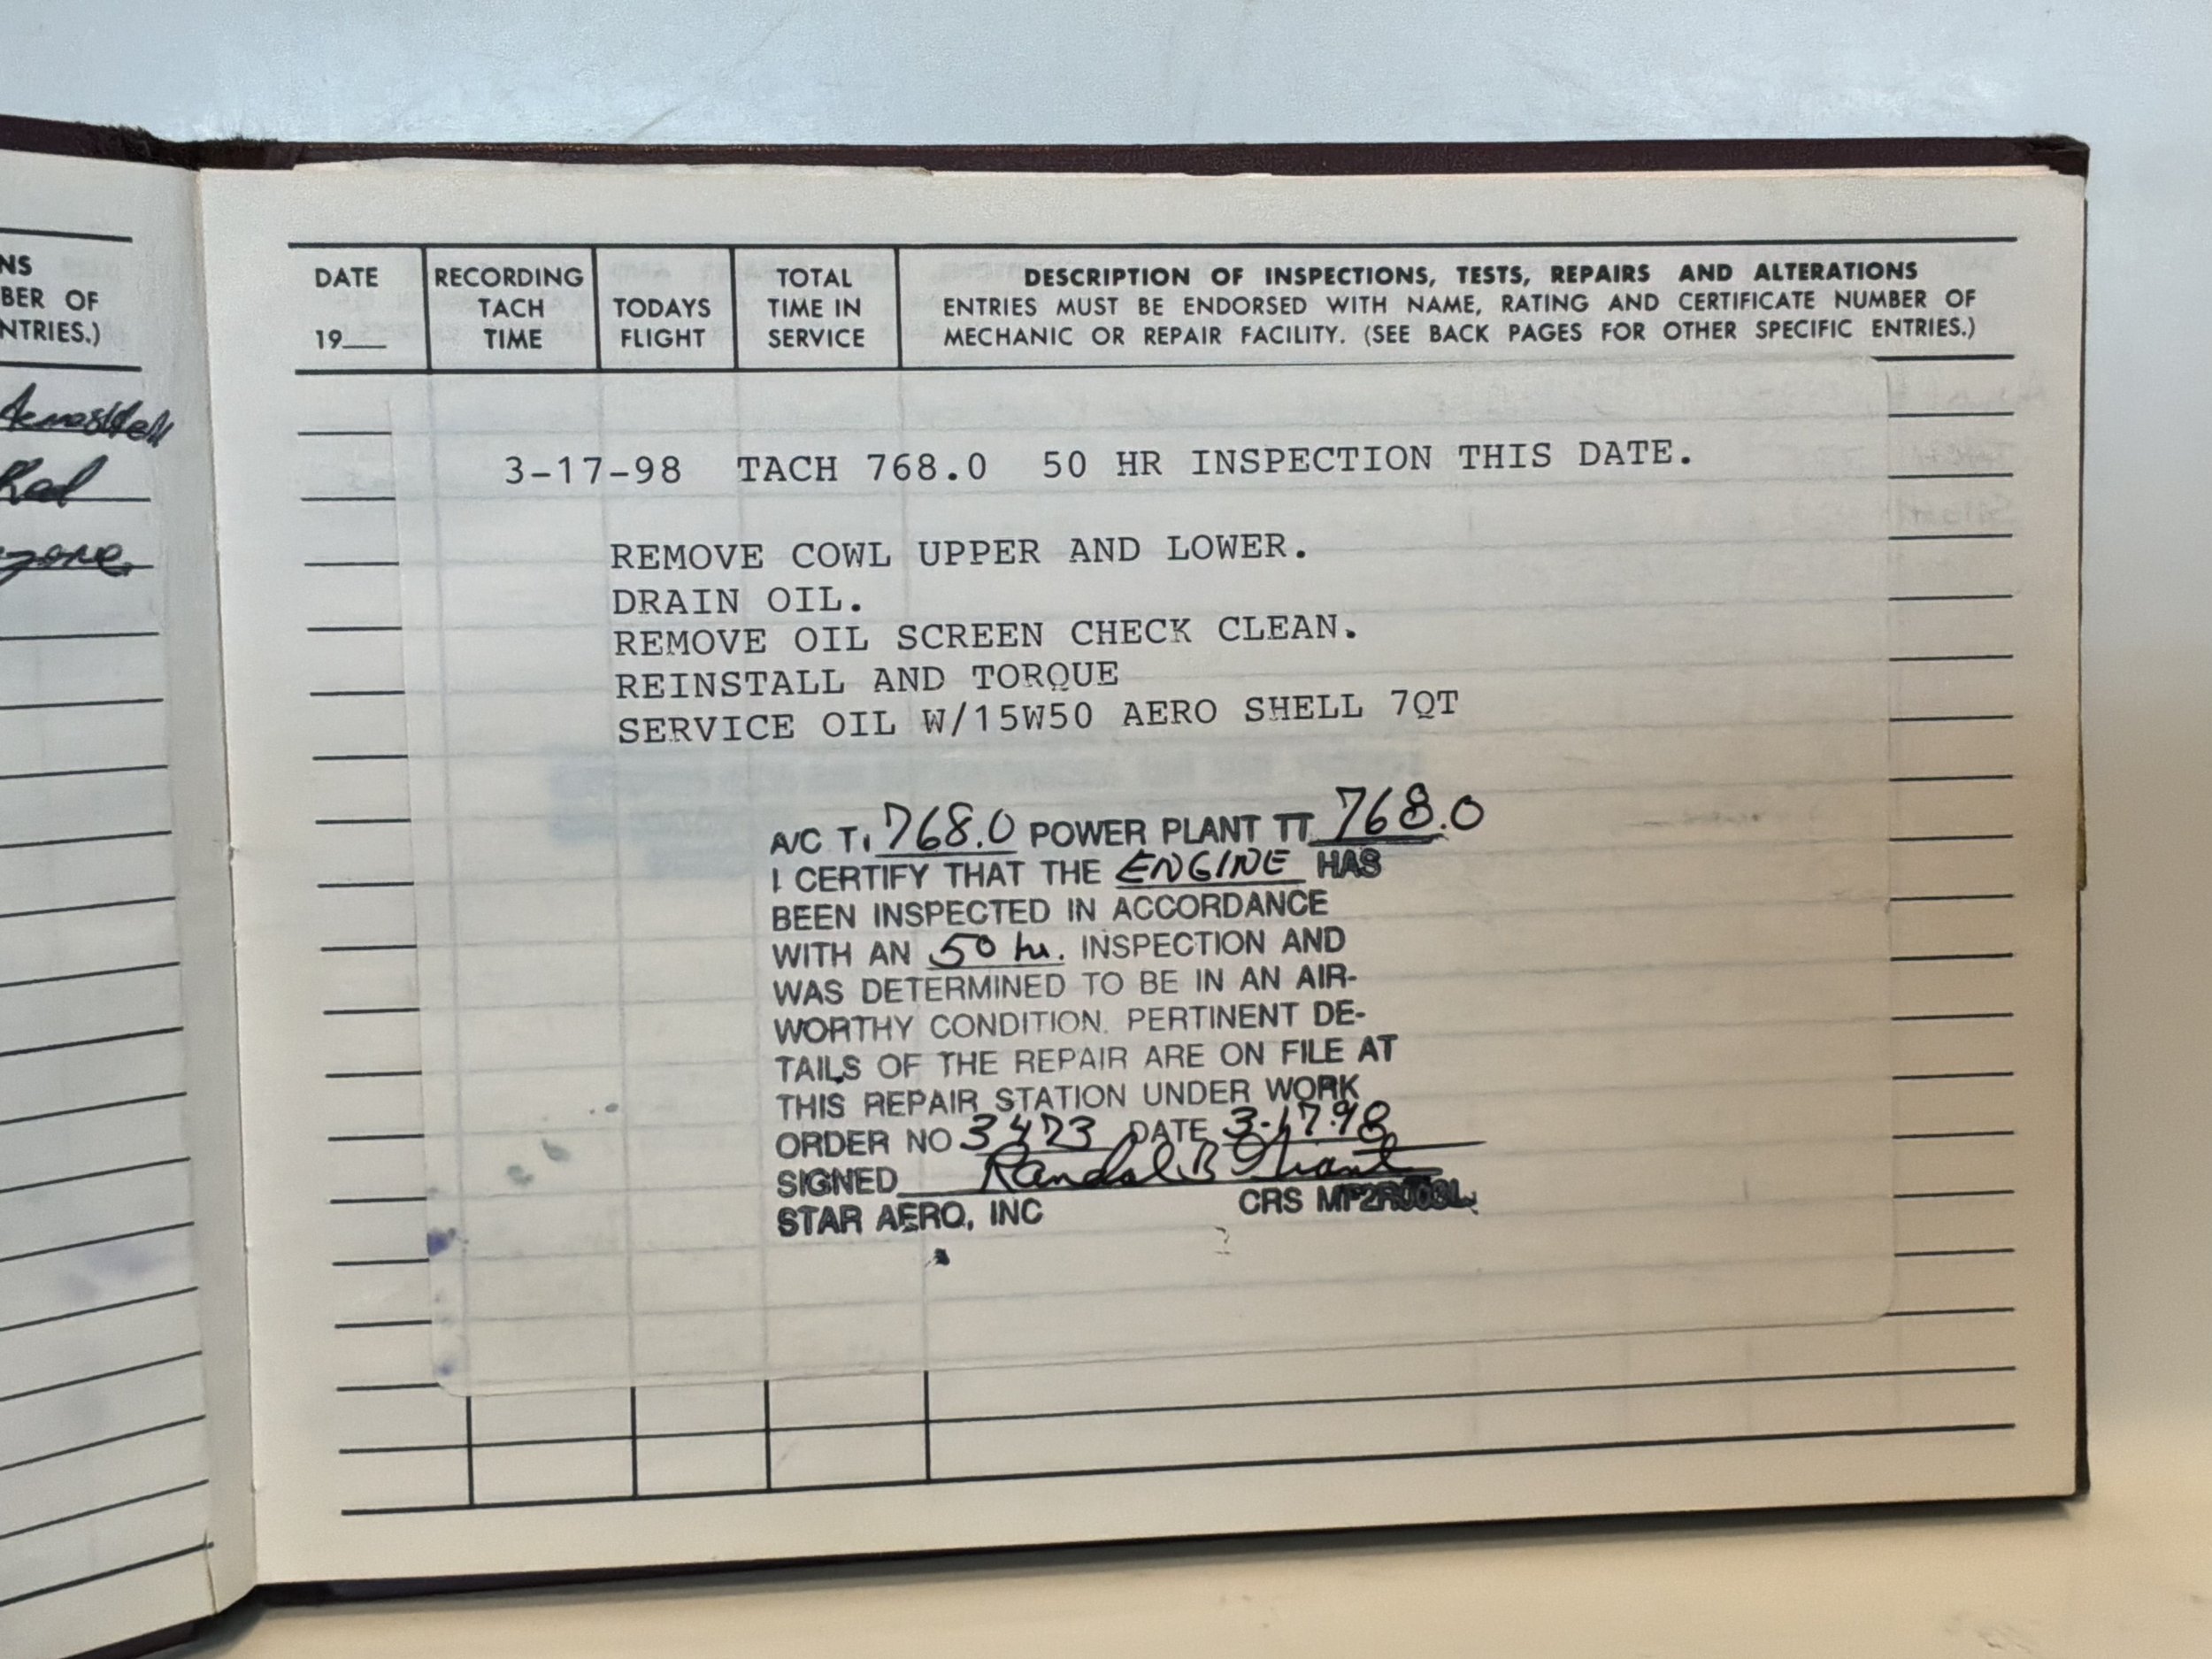 NS
BER OF
NTRIES.)
Rad
DATE
19___
RECORDING
TACH
TIME
TODAYS
FLIGHT
TOTAL
TIME IN
SERVICE
DESCRIPTION OF INSPECTIONS, TESTS, REPAIRS AND ALTERATIONS
ENTRIES MUST BE ENDORSED WITH NAME, RATING AND CERTIFICATE NUMBER OF
MECHANIC OR REPAIR FACILITY. (SEE BACK PAGES FOR OTHER SPECIFIC ENTRIES.)
3-17-98 TACH 768.0 50 HR INSPECTION THIS DATE.
REMOVE COWL UPPER AND LOWER.
DRAIN OIL.
REMOVE OIL SCREEN CHECK CLEAN.
REINSTALL AND TORQUE
SERVICE OIL W/15W50 AERO SHELL 7QT
A/C T. 768.0 POWER PLANT TT 768.0
I CERTIFY THAT THE ENGINE HAS
BEEN INSPECTED IN ACCORDANCE
WITH AN 50 hr. INSPECTION AND
WAS DETERMINED TO BE IN AN AIR-
WORTHY CONDITION. PERTINENT DE-
TAILS OF THE REPAIR ARE ON FILE AT
THIS REPAIR STATION UNDER WORK
ORDER NO 3473 DATE 3-17-98
SIGNED Randal B
STAR AERO, INC CRS